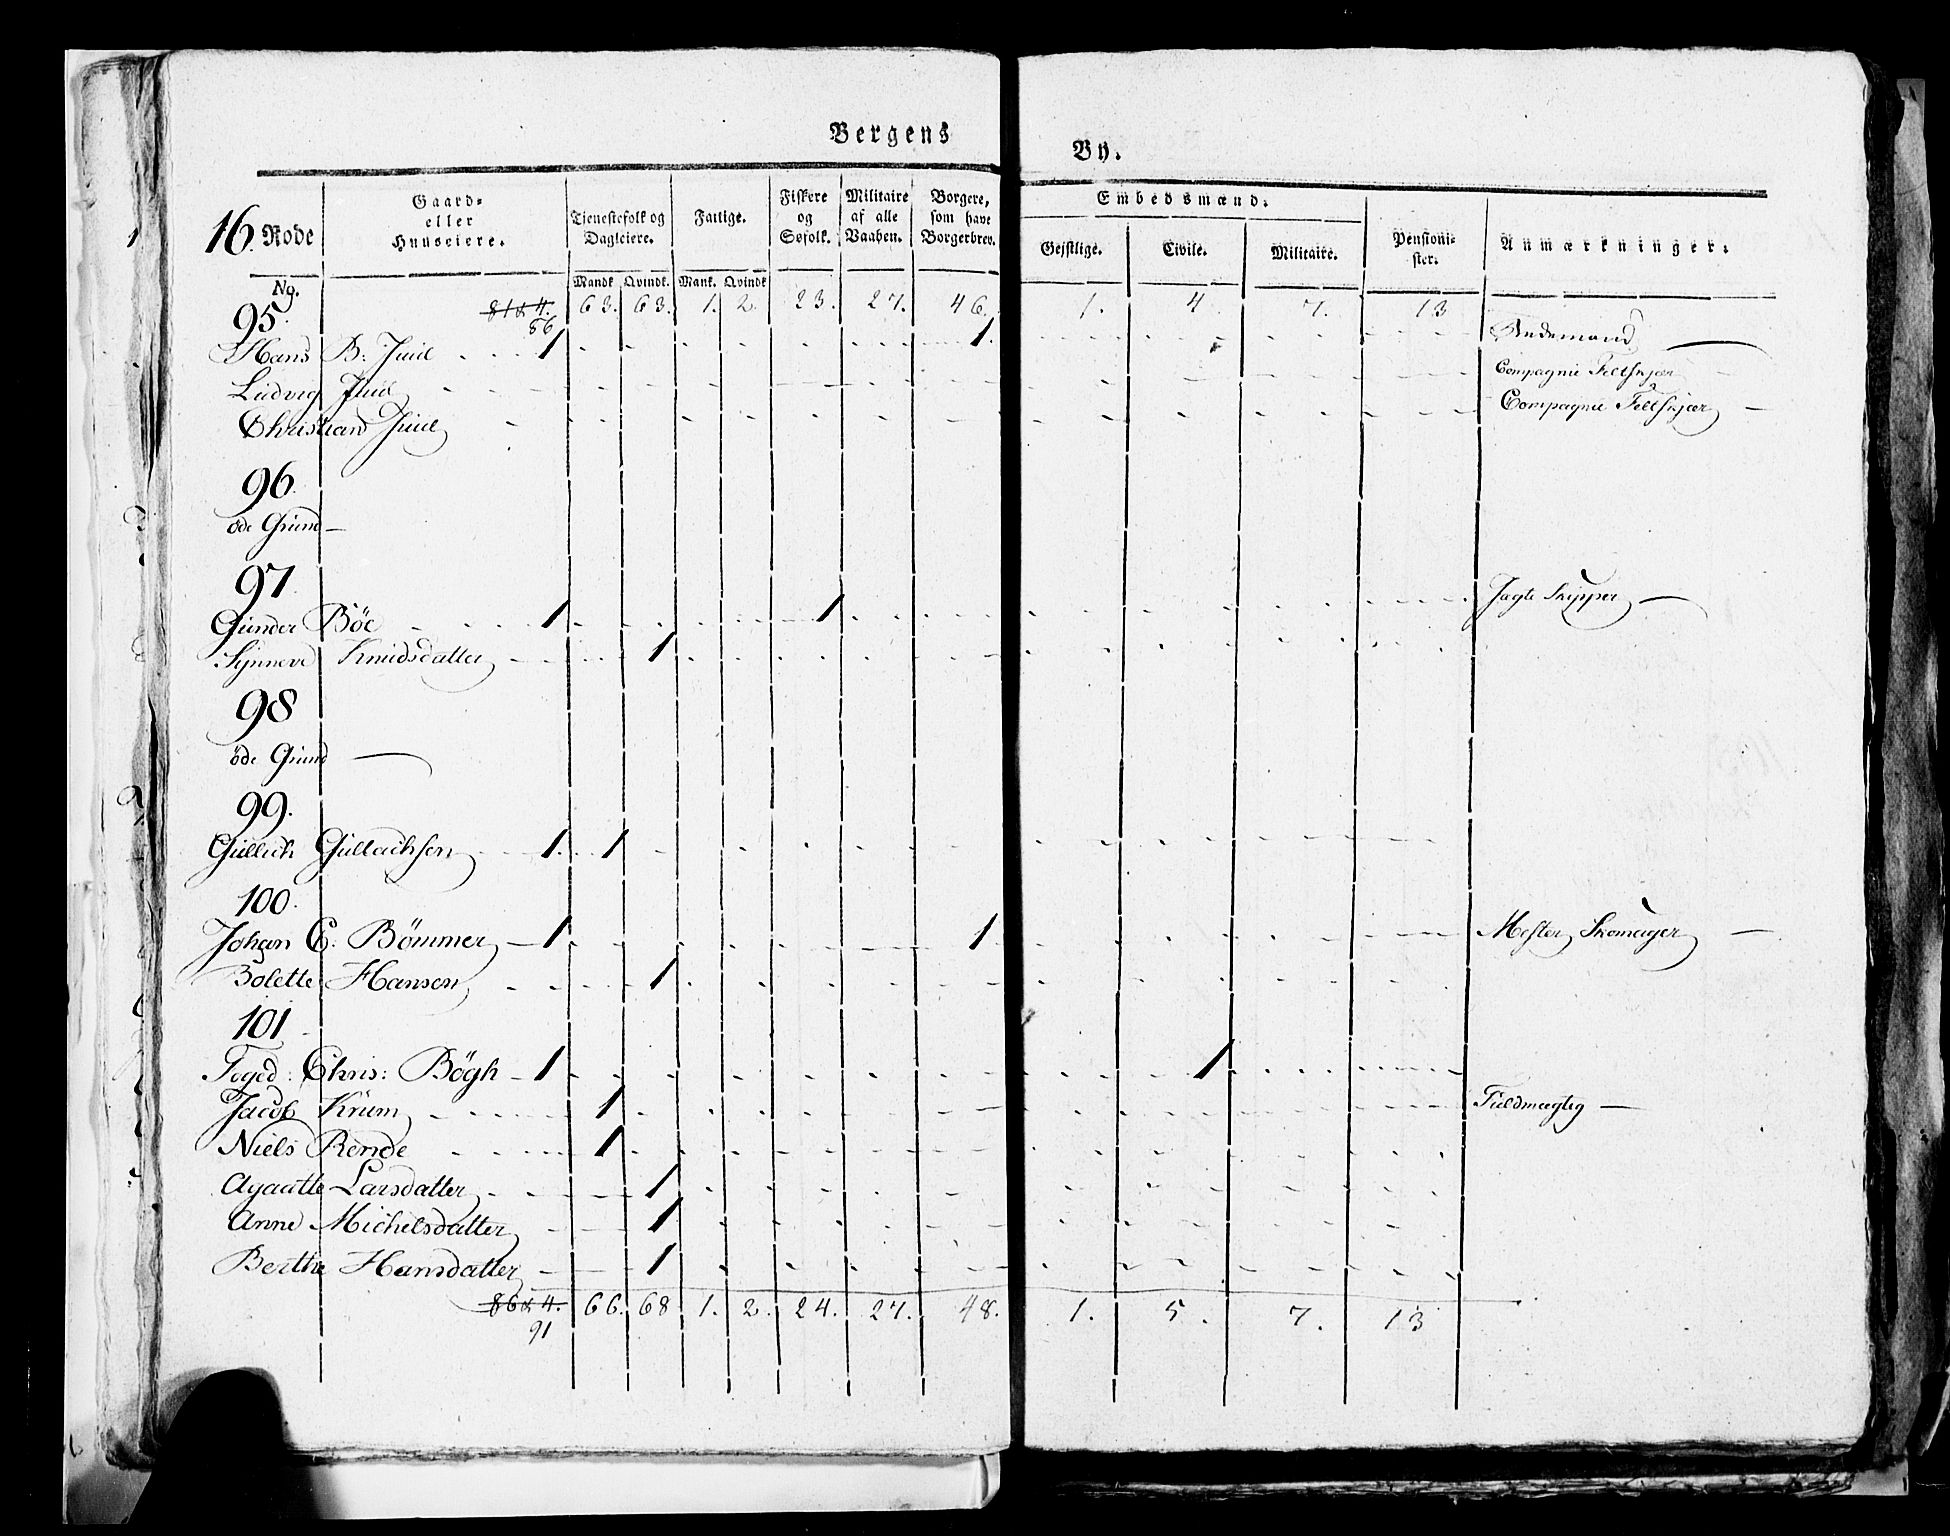 Bergens By.
16. Rode
Gaard- eller Huuseiere.
Tienestefolk og Dagleiere.
Fattige.
Fiskere og Søfolk.
Militaire af alle Vaaben.
Borgere, som have Borgerbrev.
Embedsmænd.
Geistlige. Civile. Militaire.
Pensionister.
Anmærkninger.
No. Mandk. Qvindk. Mank. Qvindk.
95. 81 & 4. 63. 63. 1. 2. 23. 27. 46. 1. 4. 7. 13
86
Hans B: Juul 1 1.
Ludvig Juul Compagnie Feltskjær
Christian Juul Compagnie Feltskjær
96.
öde Grund
97.
Gunder Böe 1 1 Jagte Skipper
Synneve Knudsdatter 1
98
öde Grund
99.
Gullich Gullachsen 1 1
100.
Johan C: Bömmer 1 1 Mester Skomager
Bolette Hansen 1
101
Foged: Chris: Bögh 1 1
Jacob Krüm 1 Fuldmægtig
Niels Remde 1
Agaathe Larsdatter 1
Anne Michelsdatter 1
Berthe Hansdatter 1
86 & 4. 66. 68 1. 2. 24. 27. 48. 1. 5. 7. 13
91